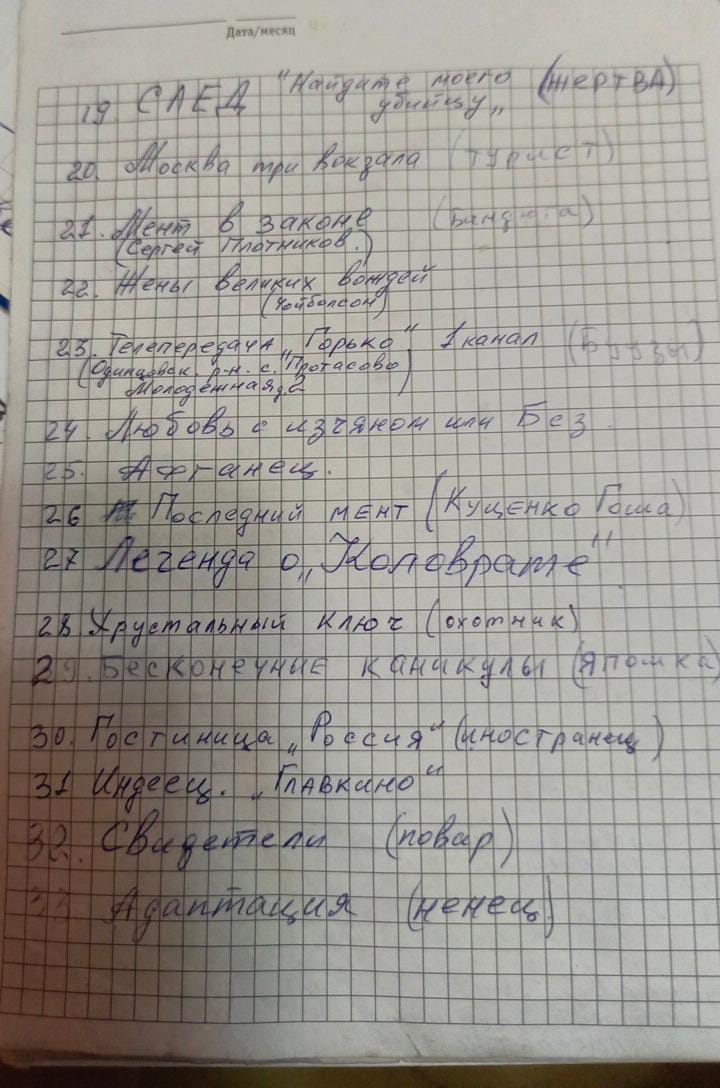 Дата/месяц
19. СЛЕД "Найдите моего (жертва)
убийцу„
20. Москва три вокзала (турист)
21. Мент в законе (Бандюга)
(Сергей Плотников.)
22. Жены великих вождей
(Чойболсон)
23. Телепередача „Горько" 1 канал
(Одинцовск. р-н. с. Протасово
Молодежная д. 2)
24. Любовь с изъяном или Без.
25. Афганец.
26 Последний мент (Кущенко Гоша)
27 Легенда о „Коловрате"
28 Хрустальный ключ (охотник)
29. Бесконечные каникулы (Япошка)
30. Гостиница „Россия" (иностранец)
31 Индеец. „Главкино"
32. Свидетели (повар)
33 Адаптация (ненец)